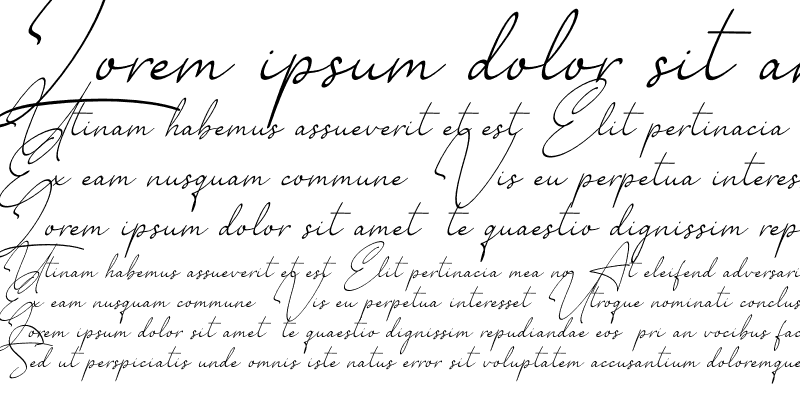 Lorem ipsum dolor sit am
Utinam habemus assueverit et est Elit pertinacia
Ex eam nusquam commune Vis eu perpetua interes
Lorem ipsum dolor sit amet te quaestio dignissim rep
Utinam habemus assueverit et est Elit pertinacia mea no At eleifend adversari
Ex eam nusquam commune Vis eu perpetua interesset Utroque nominati conclus
Lorem ipsum dolor sit amet te quaestio dignissim repudiandae eos pri an vocibus fac
Sed ut perspiciatis unde omnis iste natus error sit voluptatem accusantium doloremque